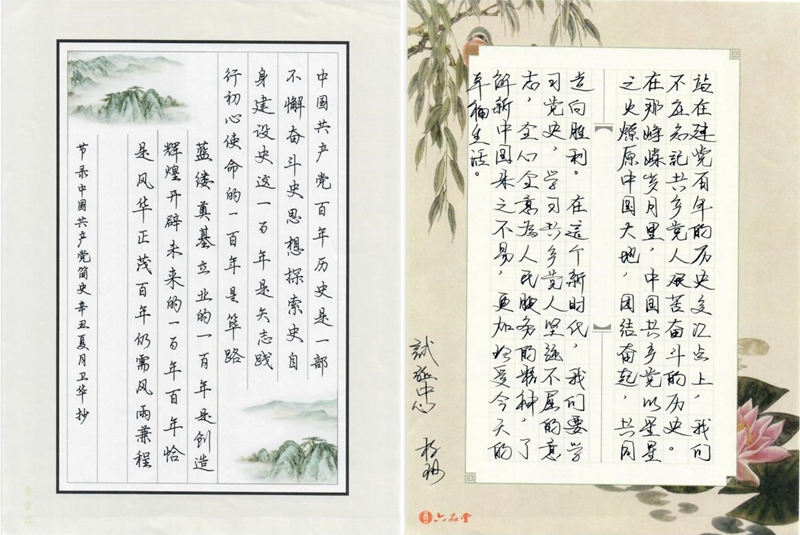 中国共产党百年历史是一部
不懈奋斗史思想探索史自
身建设史这一百年是矢志践
行初心使命的一百年是筚路
蓝缕奠基立业的一百年是创造
辉煌开辟未来的一百年百年恰
是风华正茂百年仍需风雨兼程
节录中国共产党简史辛丑夏月卫华抄
站在建党百年的历史交汇点上，我们
不应忘记共产党人艰苦奋斗的历史。
在那峥嵘岁月里，中国共产党以星星
之火燎原中国大地，团结奋起，共同
走向胜利。在这个新时代，我们要学
习党史，学习共产党人坚强不屈的意
志，全心全意为人民服务的精神，了
解新中国来之不易，更加珍爱今天的
幸福生活。
試验中心
六品堂